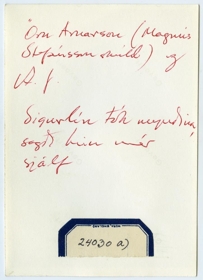 Örn Arnarson (Magnús
Stefánsson skáld) og
Sigurlín tók myndina
sagði hún mér
sjálf
24030 a)